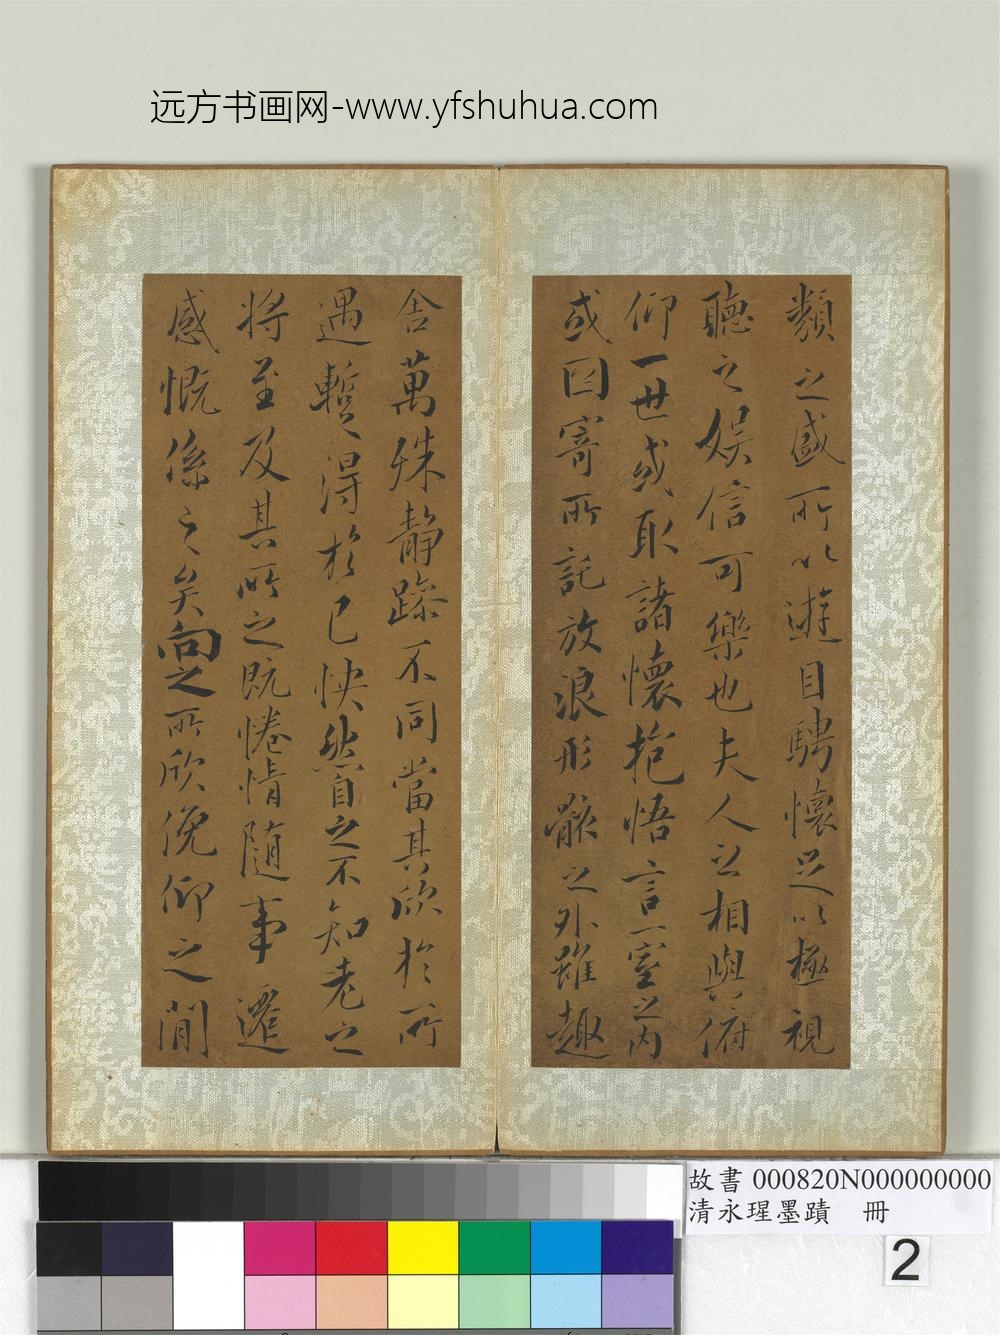 远方书画网-www.yfshuhua.com
類之盛所以遊目騁懷足以極視
聽之娱信可樂也夫人之相與俯
仰一世或取諸懷抱悟言一室之内
或因寄所託放浪形骸之外雖趣
舍萬殊静躁不同當其欣於所
遇蹔得於己怏然自之不知老之
将至及其所之既惓情随事遷
感慨係之矣向之所欣俛仰之閒
故書 000820N000000000
清永瑆墨蹟 冊
2